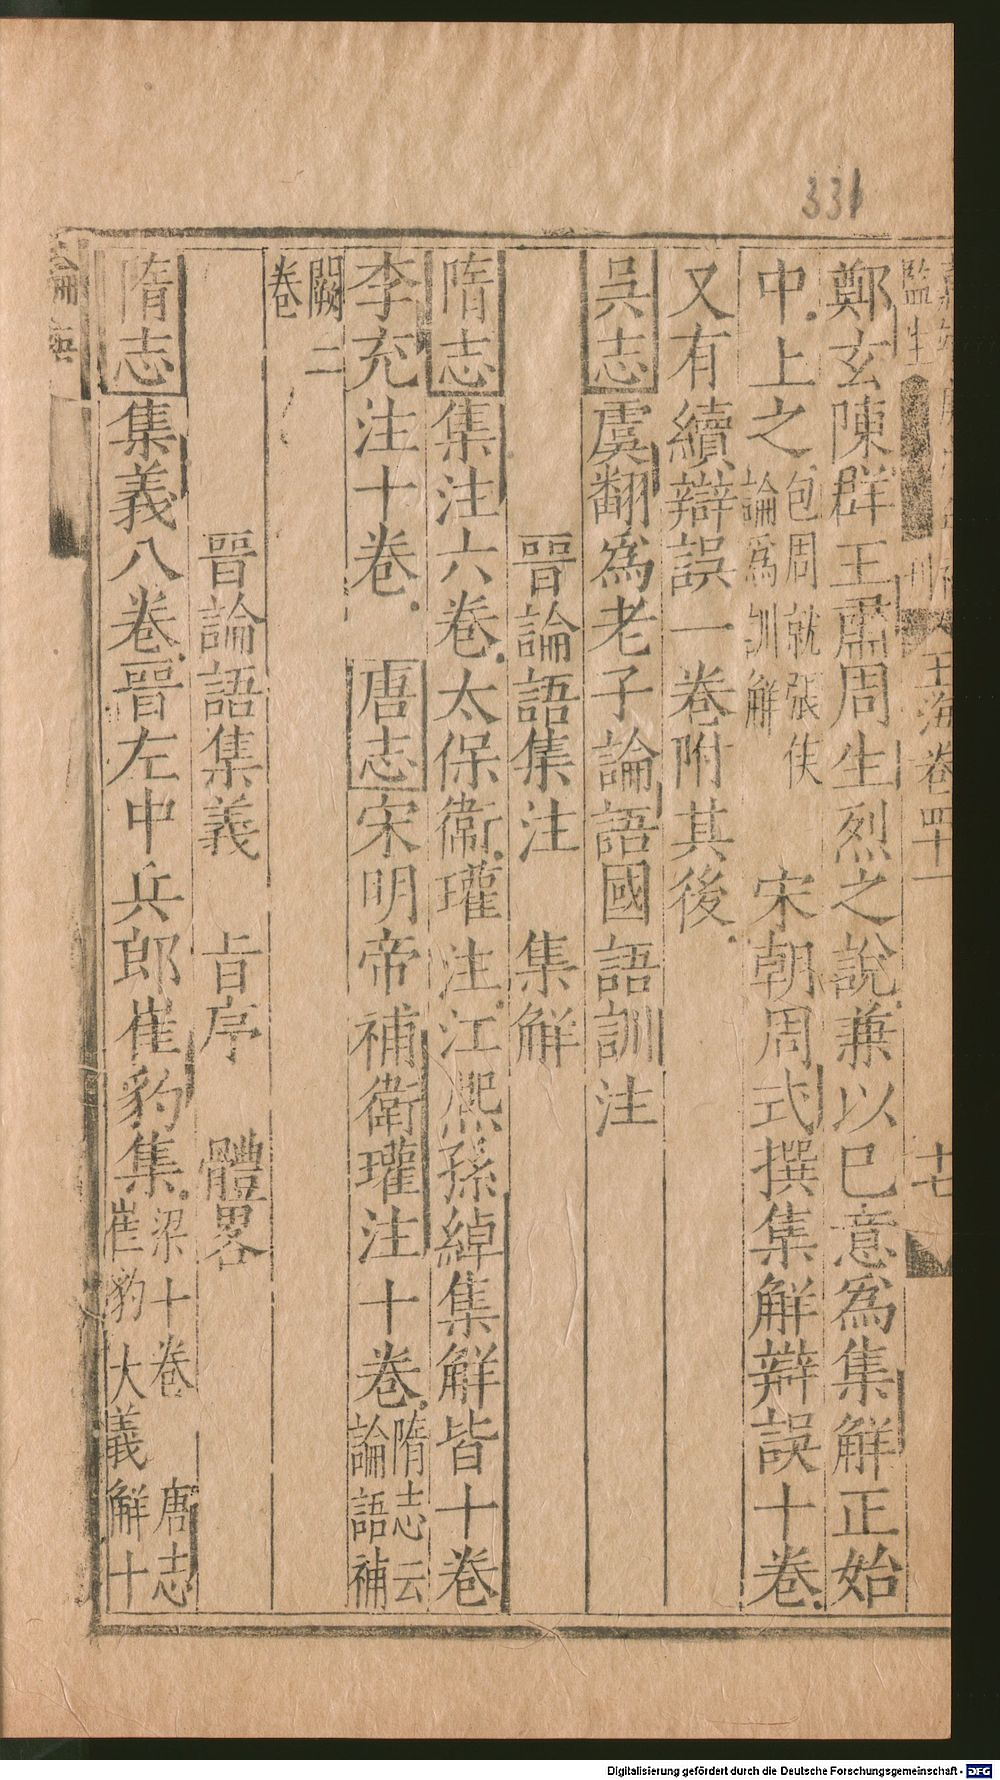 331
玉海卷四十一
十七
鄭玄陳群王肅周生烈之說兼以已意爲集解正始
中上之包周就張侯論爲訓解 宋朝周式撰集解辯誤十卷
又有續辯誤一卷附其後
吳志虞翻爲老子論語國語訓注
晉論語集注 集解
隋志集注六卷太保衞瓘注江熙孫綽集解皆十卷
李充注十卷 唐志宋明帝補衛瓘注十卷隋志云論語補
闕二卷
晉論語集義 旨序 體畧
隋志集義八卷晉左中兵郎崔豹集梁十卷 唐志崔豹大義解十
Digitalisierung gefördert durch die Deutsche Forschungsgemeinschaft - DFG